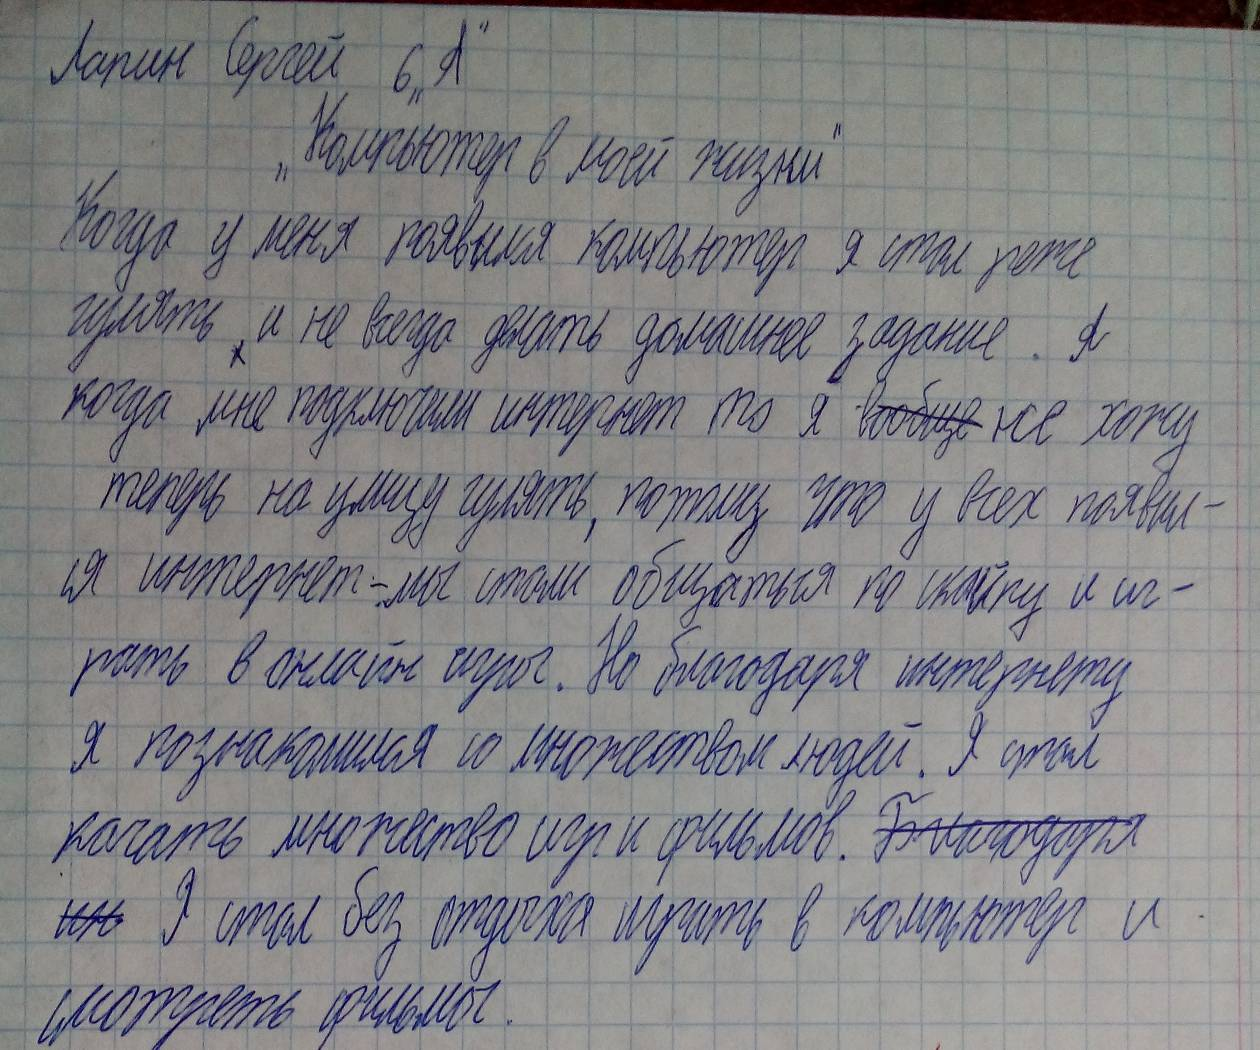 Лапин Сергей 6 „А"
„Компьютер в моей жизни"
Когда у меня появился компьютер я стал реже
гулять, и не всегда делать домашнее задание. А
когда мне подключили интернет то я вообще не хожу
теперь на улицу гулять, потому что у всех появил-
ся интернет - мы стали общаться по скайпу и иг-
рать в онлайн игры. Но благодаря интернету
я познакомился со множеством людей. Я стал
качать множество игр и фильмов. Благодаря
ин Я стал без отдыха играть в компьютер и
смотреть фильмы.